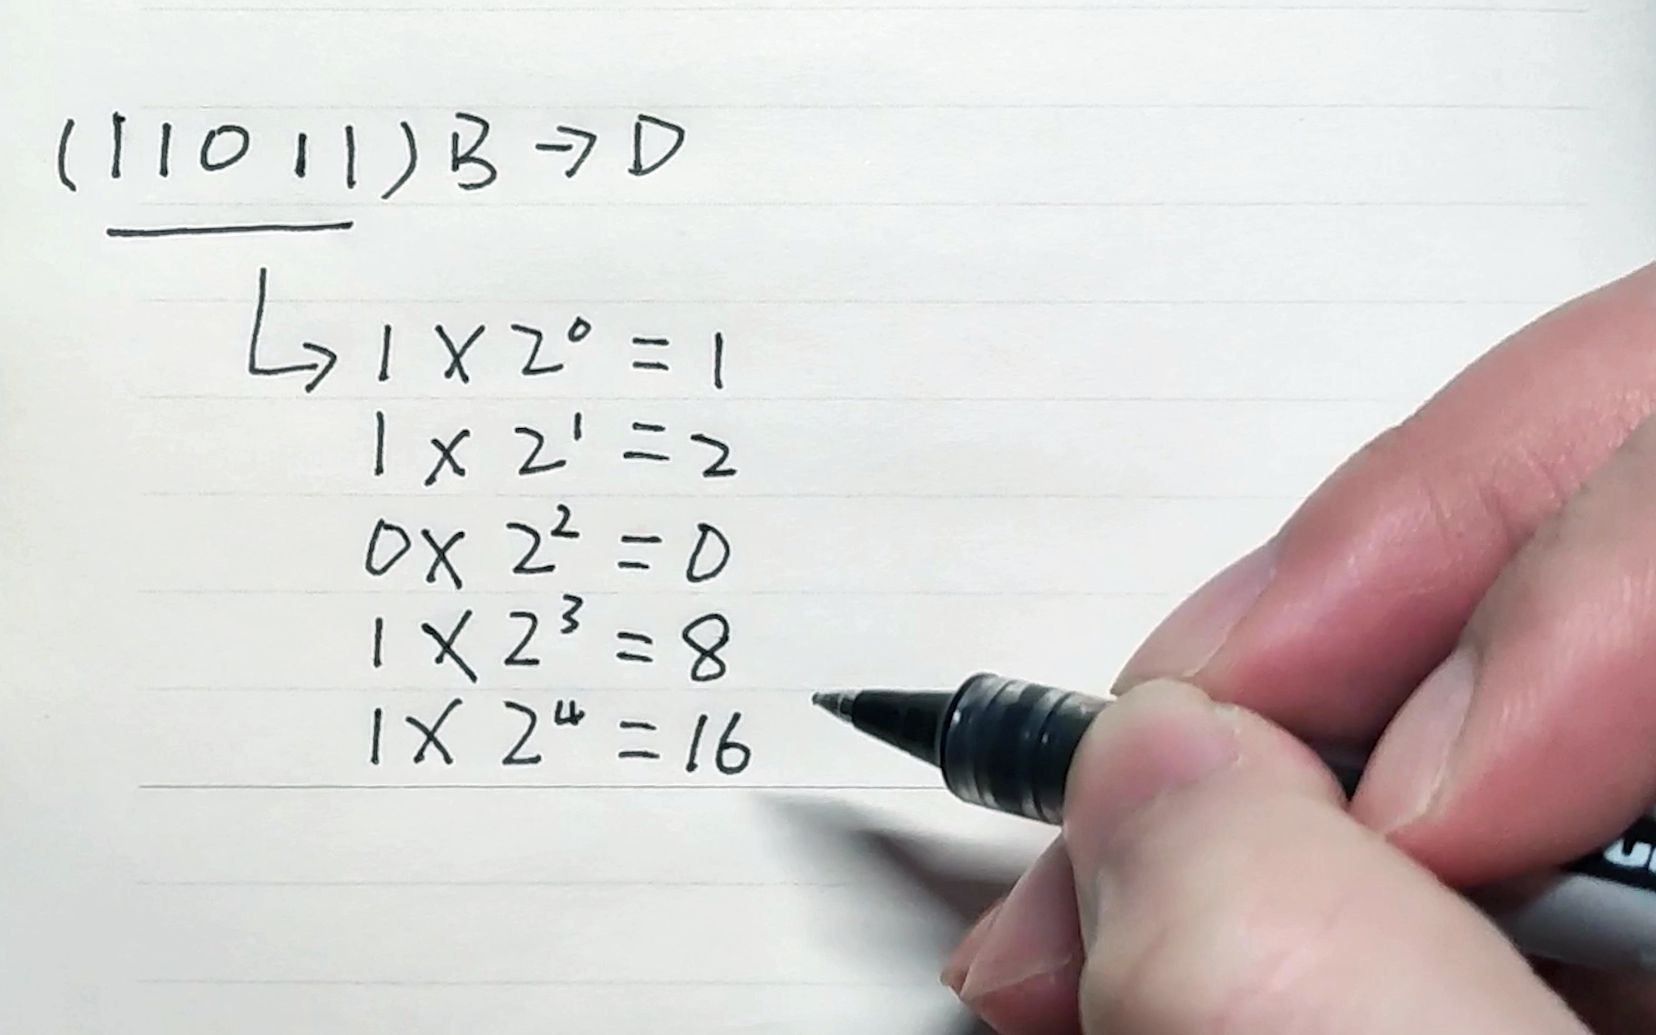 (11011)B→D
1×2⁰=1
1×2¹=2
0×2²=0
1×2³=8
1×2⁴=16